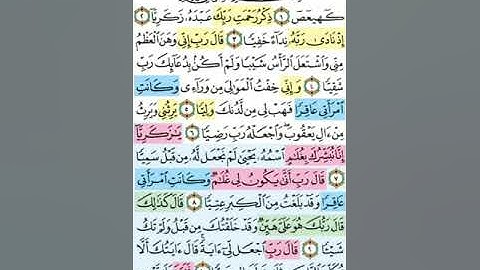 كٓهيعٓصٓ ١ ذِكْرُ رَحْمَتِ رَبِّكَ عَبْدَهُۥ زَكَرِيَّآ ٢
إِذْ نَادَىٰ رَبَّهُۥ نِدَآءً خَفِيًّا ٣ قَالَ رَبِّ إِنِّى وَهَنَ ٱلْعَظْمُ
مِنِّى وَٱشْتَعَلَ ٱلرَّأْسُ شَيْبًا وَلَمْ أَكُنۢ بِدُعَآئِكَ رَبِّ
شَقِيًّا ٤ وَإِنِّى خِفْتُ ٱلْمَوَٰلِىَ مِن وَرَآءِى وَكَانَتِ
ٱمْرَأَتِى عَاقِرًا فَهَبْ لِى مِن لَّدُنكَ وَلِيًّا ٥ يَرِثُنِى وَيَرِثُ
مِنْ ءَالِ يَعْقُوبَ وَٱجْعَلْهُ رَبِّ رَضِيًّا ٦ يَٰزَكَرِيَّآ
إِنَّا نُبَشِّرُكَ بِغُلَٰمٍ ٱسْمُهُۥ يَحْيَىٰ لَمْ نَجْعَل لَّهُۥ مِن قَبْلُ سَمِيًّا
٧ قَالَ رَبِّ أَنَّىٰ يَكُونُ لِى غُلَٰمٌ وَكَانَتِ ٱمْرَأَتِى
عَاقِرًا وَقَدْ بَلَغْتُ مِنَ ٱلْكِبَرِ عِتِيًّا ٨ قَالَ كَذَٰلِكَ
قَالَ رَبُّكَ هُوَ عَلَىَّ هَيِّنٌ وَقَدْ خَلَقْتُكَ مِن قَبْلُ وَلَمْ تَكُ
شَيْـًٔا ٩ قَالَ رَبِّ ٱجْعَل لِّىٓ ءَايَةً قَالَ ءَايَتُكَ أَلَّا